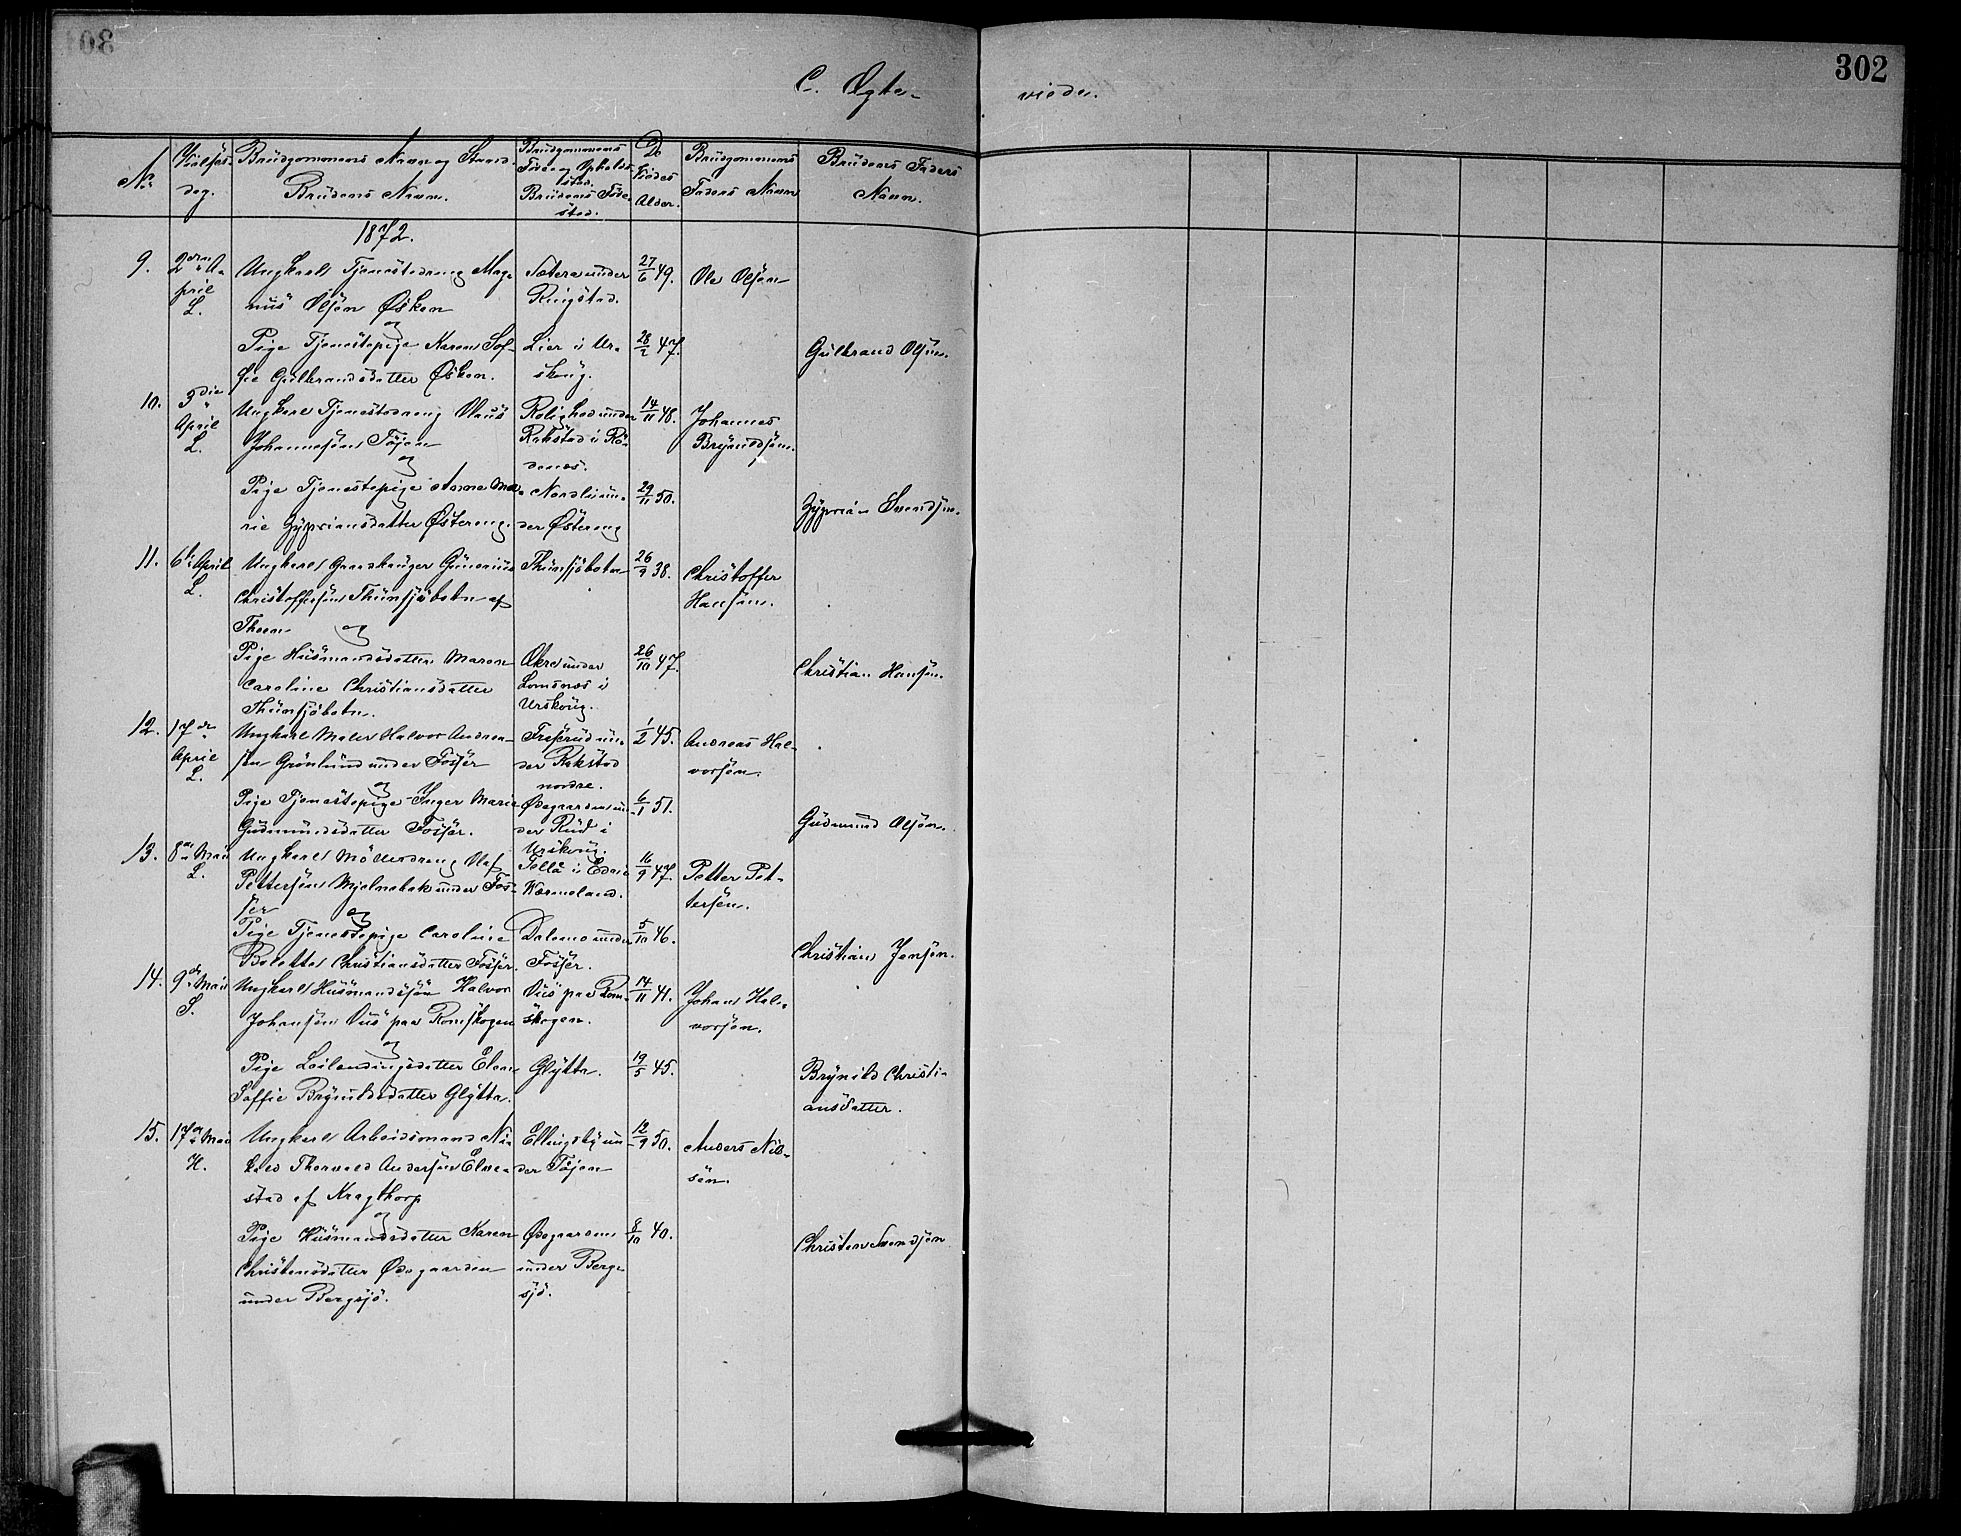 302
C. Ægte-
viede.
No
Vielses-
dag.
Brudgommens Navn og Stand.
Brudens Navn.
Brudgommens
Føde og Opholds
sted.
Brudens Føde-
sted.
De
Viedes
Alder.
Brudgommens
Faders Navn
Brudens Faders
Navn.
1872.
9.
2den A-
pril
L.
Ungkarl Tjenestedreng Mag-
nus Olsøn Øsken
og
Sætra under
Ringstad.
27/6 49.
Ole Olsøn
Pige Tjenestepige Karen Sof-
fie Gulbrandsdatter Øsken.
Lier i Ur-
skoug.
28/2 47.
Gulbrand Olsøn.
10.
3die
April
L.
Ungkarl Tjenestedreng Olaus
Johannesøn Tøien
og
Rolighed under
Rakstad i Rø-
denæs.
14/11 48.
Johannes
Brynildsøn.
Pige Tjenestepige Anne Ma-
rie Zypriansdatter Østereng.
Nordli un-
der Østereng
29/11 50.
Zyprian Svendsøn.
11.
6te April
L.
Ungkarl Gaardbruger Gunerius
Christoffersøn Thunsjøbotn af
Theen
og
Thunsjøbotn
26/9 38.
Christoffer
Hansøn.
Pige Husmandsdatter Maren
Caroline Christiansdatter
Thunsjøbotn.
Økre under
Lomsnæs i
Urskoug.
26/10 47.
Christian Hansøn.
12.
17de
April
L.
Ungkarl Maler Halvor Andrea-
sen Grønlund under Fosser
og
un-
der Rakstad
nordre.
1/2 45.
Andreas Hal-
vorsøn.
Pige Tjenestepige Inger Marie
Gudmundsdatter Fosser.
Ødegaarden un-
der Rud i
Urskoug.
6/1 51.
Gudmund Olsøn.
13.
8de Mai
L.
Ungkarl Møllerdreng Olaf
Pettersøn Mjølnebak under Fos-
ser
og
Tella i Eda i
Værmeland.
16/9 47.
Petter Pet-
tersøn.
Pige Tjenestepige Caroline
Bolette Christiansdatter Fosser.
Dalemo under
Fosser.
5/10 46.
Christian Jensøn.
14.
9de Mai
S.
Ungkarl Husmandssøn Halvor
Johansøn Vüs paa Romskogen
og
Vüs paa Rom-
skogen.
14/11 41.
Johan Hal-
vorsøn.
Pige Leilendingsdatter Elen
Soffie Brynildsdatter Glytta.
Glytta.
19/5 45.
Brynild Christi-
ansdatter.
15.
17de Mai
H.
Ungkarl Arbeidsmand Ni-
kolai Thorvald Andersøn Elve-
stad af Kragtorp
og
Ellingsby un-
der Tøien
12/9 50.
Anders Nil-
søn.
Pige Husmandsdatter Karen
Christensdatter Ødegaarden
under Bergsjø.
Ødegaarden
under Berg-
sjø.
8/10 40.
Christen Svendsøn